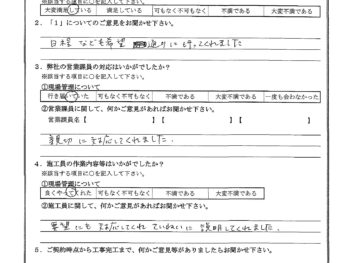 ※該当する項目に○を記入して下さい
大変満足している 満足している 可もなく不可もなく 不満である 大変不満である
2．「1」についてのご意見をお聞かせ下さい。
日程なども希望通りに作てくれました
3．弊社の営業課員の対応はいかがでしたか？
※該当する項目に○を記入して下さい。
①現場管理について
行き届いていた 可もなく不可もなく 不満である 大変不満である 一度も会わなかった
②営業課員に関して、何かご意見があればお聞かせ下さい。
営業課員名【 】【 】【 】
親切に対応してくれました。
4．施工員の作業内容等はいかがでしたか？
※該当する項目に○を記入して下さい。
①現場管理について
良くやってくれた 可もなく不可もなく 不満である 大変不満である
②施工員に関して、何かご意見があればお聞かせ下さい。
要望にも対応してくれ ていねいに説明してくれました。
5．ご契約時点から工事完工まで、何かご意見等がありましたらお聞かせ下さい。